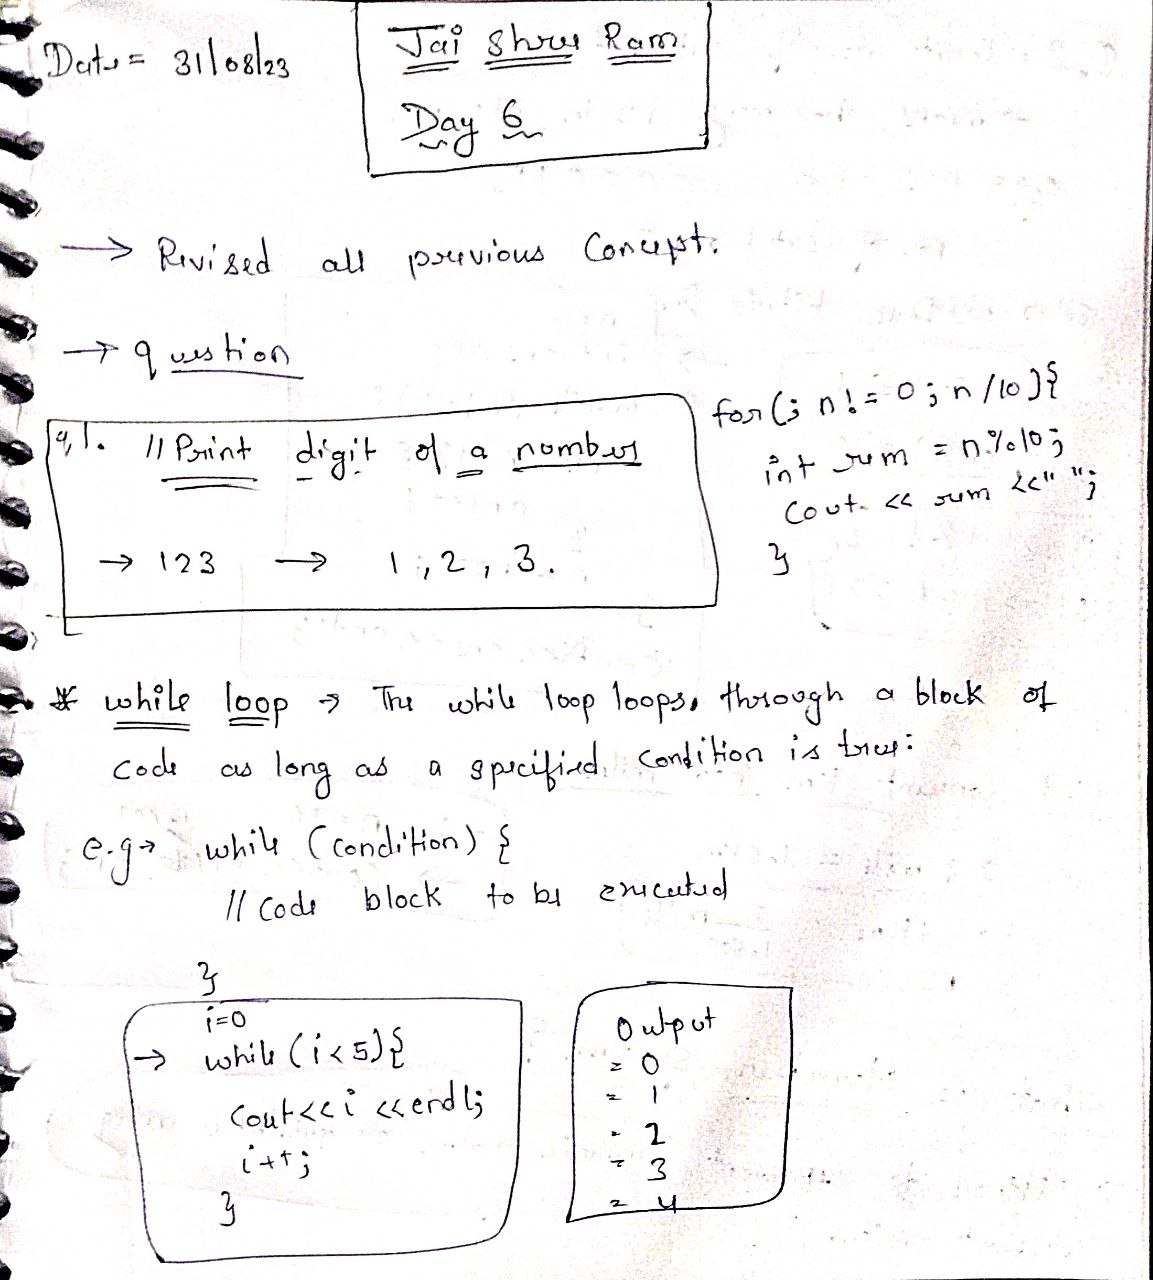 Date = 31/08/23
Jai Shree Ram
Day 6
→ Revised all previous Concept.
→ question
q,1. // Print digit of a number
→ 123 → 1, 2, 3.
for(; n! = 0; n/10){
int rem = n%10;
cout << rem <<" ";
}
* while loop → The while loop loops, through a block of
code as long as a specified condition is true:
e.g→ while (condition) {
// code block to be executed
}
i=0
→ while (i<5){
cout<<i <<endl;
i++;
}
Output
= 0
= 1
- 2
= 3
= 4